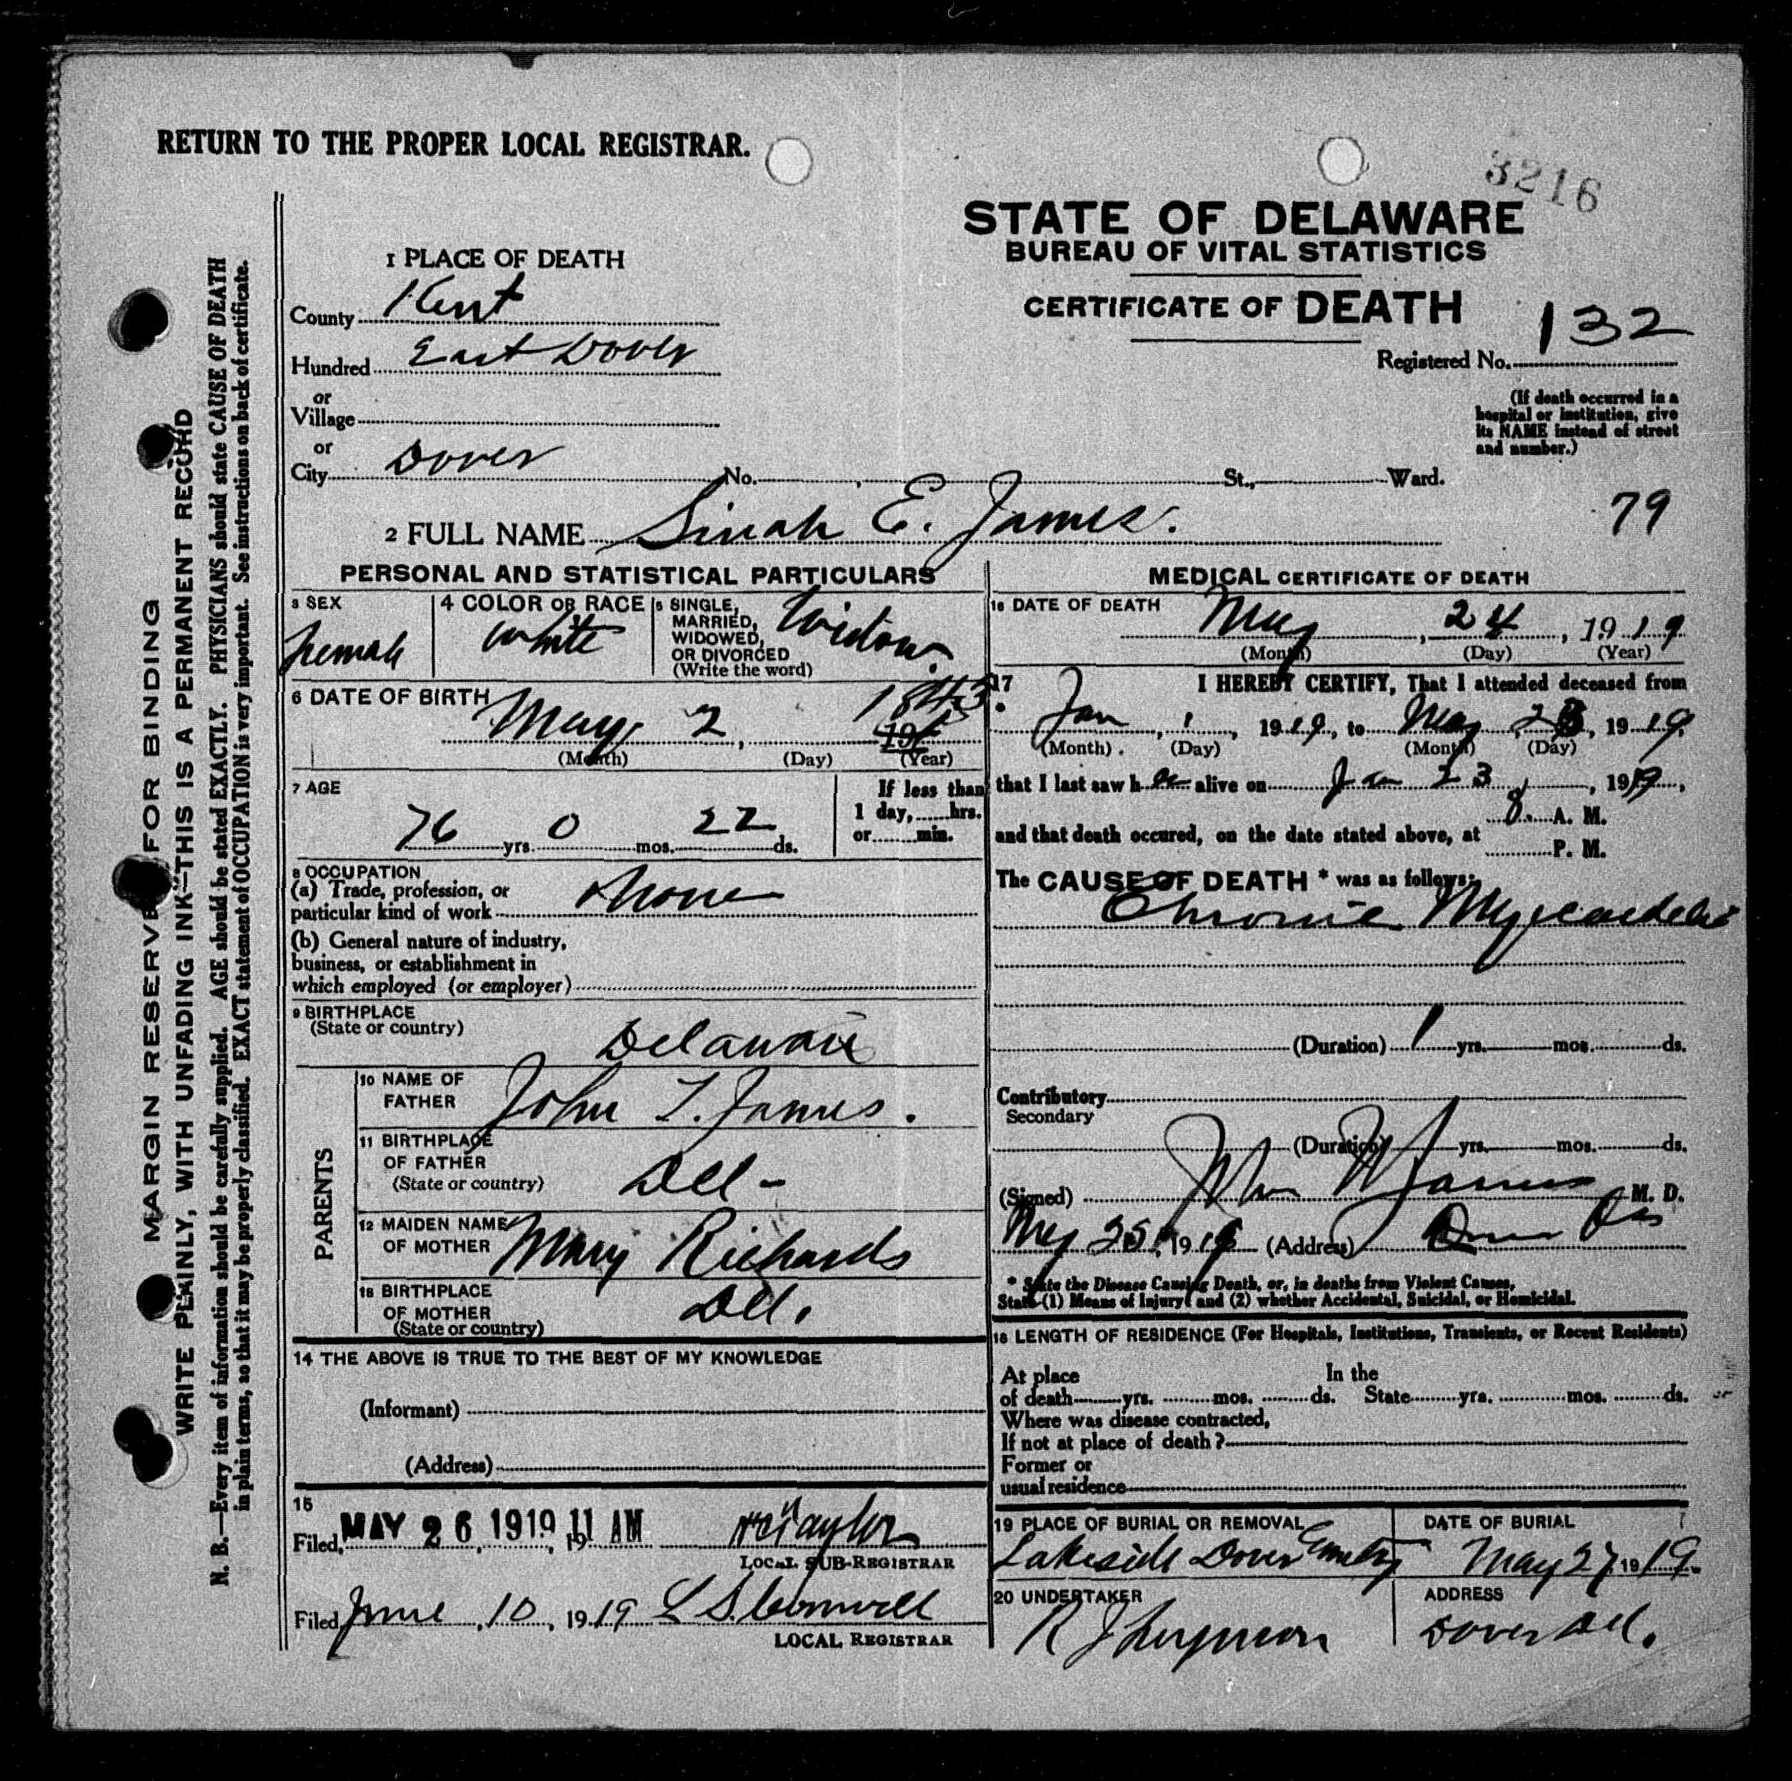 RETURN TO THE PROPER LOCAL REGISTRAR.
3216
STATE OF DELAWARE
BUREAU OF VITAL STATISTICS
CERTIFICATE OF DEATH
Registered No. 132
(If death occurred in a
hospital or institution, give
its NAME instead of street
and number.)
1 PLACE OF DEATH
County Kent
Hundred East Dover
or
Village
or
City Dover No. St., Ward.
2 FULL NAME Sinah E. James.
79
MARGIN RESERVED FOR BINDING
WRITE PLAINLY, WITH UNFADING INK—THIS IS A PERMANENT RECORD
N. B.—Every item of information should be carefully supplied. AGE should be stated EXACTLY. PHYSICIANS should state CAUSE OF DEATH
in plain terms, so that it may be properly classified. EXACT statement of OCCUPATION is very important. See instructions on back of certificate.
PERSONAL AND STATISTICAL PARTICULARS
3 SEX
Female
4 COLOR OR RACE
White
5 SINGLE,
MARRIED,
WIDOWED,
OR DIVORCED
(Write the word)
Widow.
6 DATE OF BIRTH
May 2, 1843
(Month) (Day) (Year)
7 AGE
76 yrs. 0 mos. 22 ds.
If less than
1 day, hrs.
or min.
8 OCCUPATION
(a) Trade, profession, or
particular kind of work None
(b) General nature of industry,
business, or establishment in
which employed (or employer)
9 BIRTHPLACE
(State or country)
Delaware
PARENTS
10 NAME OF
FATHER
John T. James.
11 BIRTHPLACE
OF FATHER
(State or country)
Del -
12 MAIDEN NAME
OF MOTHER
Mary Richards
13 BIRTHPLACE
OF MOTHER
(State or country)
Del.
14 THE ABOVE IS TRUE TO THE BEST OF MY KNOWLEDGE
(Informant)
(Address)
15
Filed, MAY 26, 1919 11 AM, 19 Taylor
LOCAL SUB-REGISTRAR
Filed June, 10, 1919 L S. Conwell
LOCAL REGISTRAR
MEDICAL CERTIFICATE OF DEATH
16 DATE OF DEATH
May, 24, 1919
(Month) (Day) (Year)
17 I HEREBY CERTIFY, That I attended deceased from
Jan, 1, 1919, to May, 1919,
(Month) (Day) (Month) (Day)
that I last saw her alive on 23, 1919,
and that death occured, on the date stated above, at 8. A. M.
P. M.
The CAUSE OF DEATH * was as follows:
Chronic Myocarditis
(Duration) 1 yrs. mos. ds.
Contributory
Secondary
(Duration) yrs. mos. ds.
(Signed) James M. D.
May 25, 1919 (Address) Dover Del
* State the Disease Causing Death, or, in deaths from Violent Causes,
State (1) Means of Injury; and (2) whether Accidental, Suicidal, or Homicidal.
18 LENGTH OF RESIDENCE (For Hospitals, Institutions, Transients, or Recent Residents)
At place In the
of death yrs. mos. ds. State yrs. mos. ds.
Where was disease contracted,
If not at place of death?
Former or
usual residence
19 PLACE OF BURIAL OR REMOVAL
Lakeside Dover Cemetry
DATE OF BURIAL
May 27, 1919.
20 UNDERTAKER
R J
ADDRESS
Dover Del.